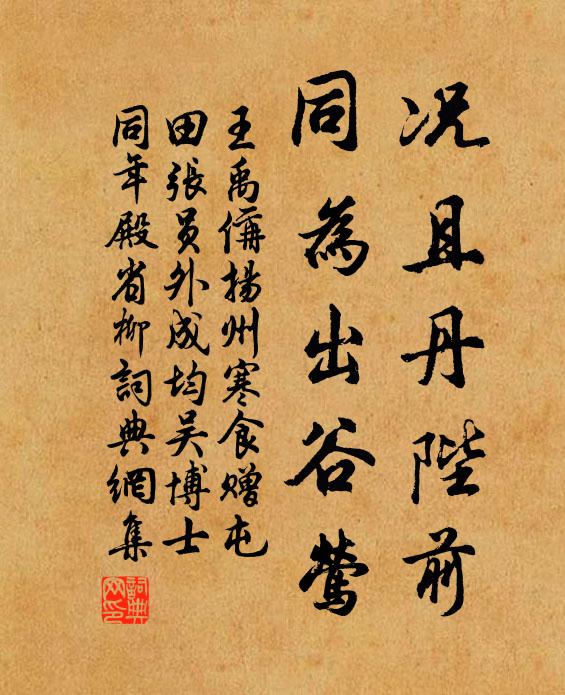 况且丹陛前
同為出谷鶯
王禹偁揚州寒食贈屯
田張員外成均吴博士
同年殿省柳詞典網集
詞典网印